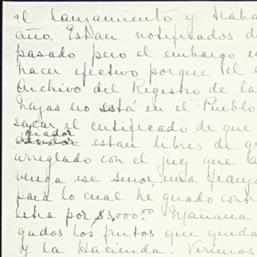 el lanzamiento y traba
año, Estan notificados d
pasado pero el embargo n
hacer efectivo porque el e
Archivo del Registro de la
Lajas no está en el Pueblo
sacar el certificado de que
fiador
estan libres de gr
arreglado con el juez que a
venga ese señor, una fianza
para lo cual he quedo con
letra por $3,000.00 Mañana
gados los frutos que queda
y la Hacienda. Veremos